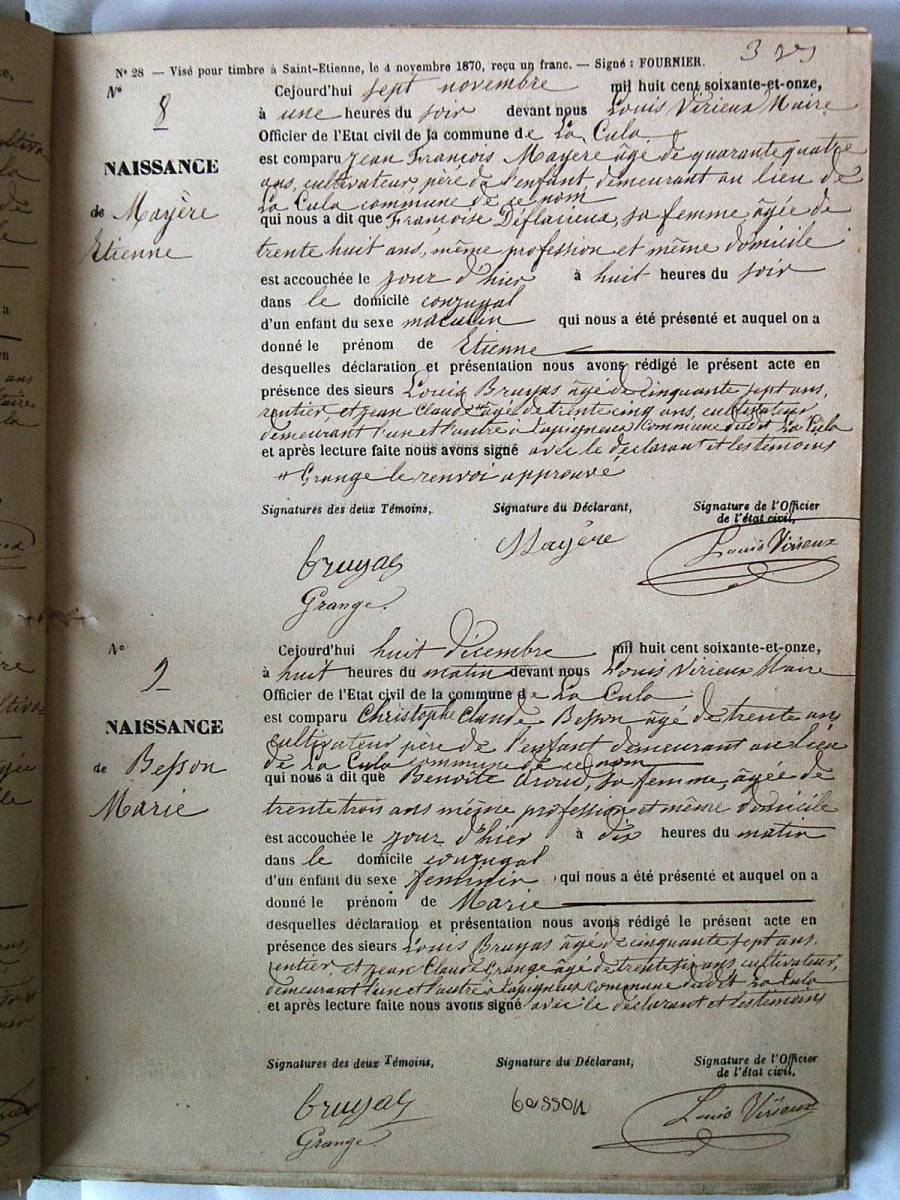 3 25
N° 28 — Visé pour timbre à Saint-Etienne, le 4 novembre 1870, reçu un franc. — Signé : FOURNIER.
N°
8
NAISSANCE
de Mayère
Etienne
Cejourd'hui sept novembre mil huit cent soixante-et-onze,
à une heures du soir devant nous Louis Virieux Maire
Officier de l'Etat civil de la commune de La Cula
est comparu Jean François Mayère âgé de quarante quatre
ans, cultivateur, père de l'enfant demeurant au lieu de
La Cula commune de ce nom
qui nous a dit que Françoise sa femme, âgée de
trente huit ans, même profession et même domicile
est accouchée le jour d'hier à huit heures du soir
dans le domicile conjugal
d'un enfant du sexe masculin qui nous a été présenté et auquel on a
donné le prénom de Etienne
desquelles déclaration et présentation nous avons rédigé le présent acte en
présence des sieurs Louis Bruyas âgé de cinquante sept ans,
rentier, et Jean Claude # âgé de trente cinq ans, cultivateur
demeurant l'un et l'autre à commune dudit La Cula
et après lecture faite nous avons signé avec le déclarant et les témoins
# Grange le renvoi approuvé
Signatures des deux Témoins, Signature du Déclarant, Signature de l'Officier
de l'état civil,
bruyas Mayère Louis Virieux
Grange.
N°
9
NAISSANCE
de Besson
Marie
Cejourd'hui huit décembre mil huit cent soixante-et-onze,
à huit heures du matin devant nous Louis Virieux Maire
Officier de l'Etat civil de la commune de La Cula
est comparu Christophe Claude Besson âgé de trente ans
cultivateur père de l'enfant demeurant au lieu
de La Cula commune de ce nom
qui nous a dit que Benoîte sa femme, âgée de
trente trois ans même profession et même domicile
est accouchée le jour d'hier à dix heures du matin
dans le domicile conjugal
d'un enfant du sexe feminin qui nous a été présenté et auquel on a
donné le prénom de Marie
desquelles déclaration et présentation nous avons rédigé le présent acte en
présence des sieurs Louis Bruyas âgé de cinquante sept ans,
rentier, et Jean Claude Grange âgé de trente six ans cultivateur,
demeurant l'un et l'autre à commune dudit La Cula
et après lecture faite nous avons signé avec le déclarant et les témoins
Signatures des deux Témoins, Signature du Déclarant, Signature de l'Officier
de l'état civil,
bruyas besson Louis Virieux
Grange.